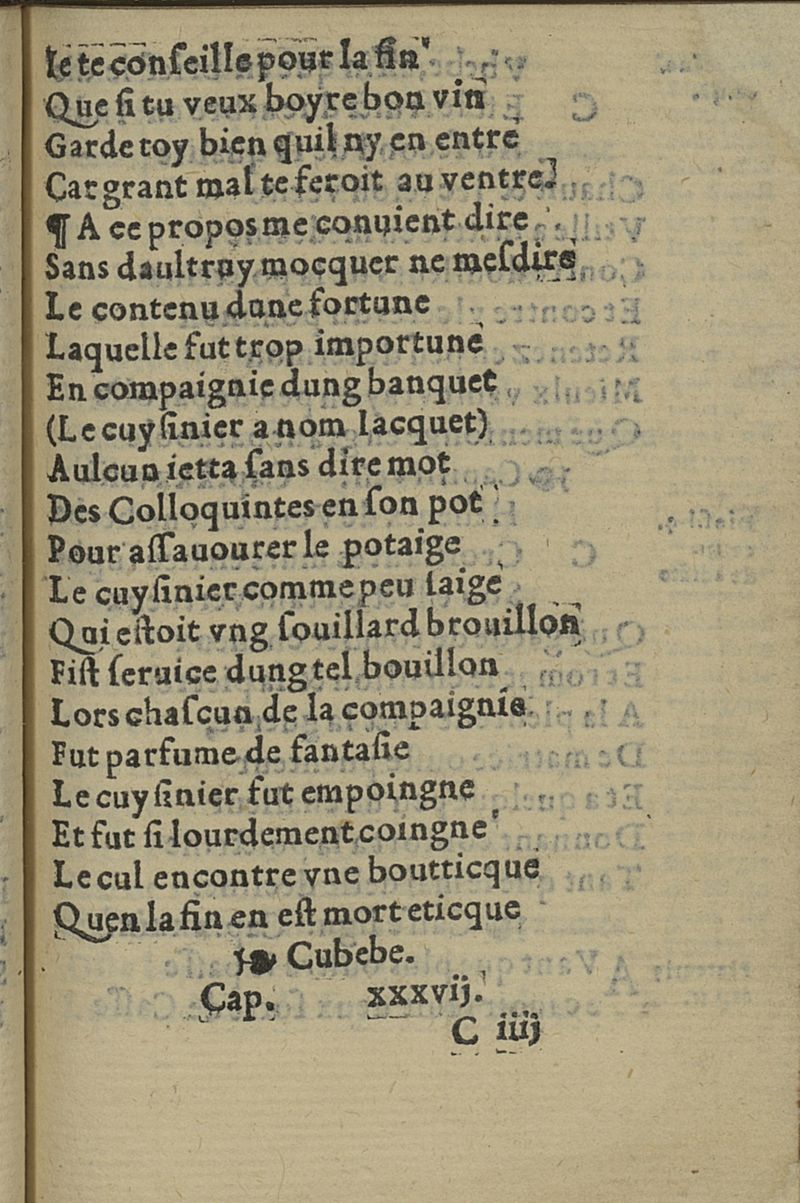 Ie te conſeille pour la fin
Que ſi tu veux boyre bon vin
Garde toy bien quil ny en entre
Car grant mal te feroit au ventre.
¶ A ce propos me conuient dire
Sans daultruy mocquer ne meſdire
Le contenu dune fortune
Laquelle fut trop importune
En compaignie dung banquet
(Le cuyſinier a nom Iacquet)
Aulcun ietta ſans dire mot
Des Colloquintes en ſon pot
Pour aſſauourer le potaige
Le cuyſinier comme peu ſaige
Qui eſtoit vng ſouillard brouillon
Fiſt ſeruice dung tel bouillon
Lors chaſcun de la compaignie
Fut parfume de fantaſie
Le cuyſinier fut empoingne
Et fut ſi lourdement coingne
Le cul encontre vne boutticque
Quen la fin en eſt mort eticque
❧ Cubebe.
Cap. xxxvij.
C iiij